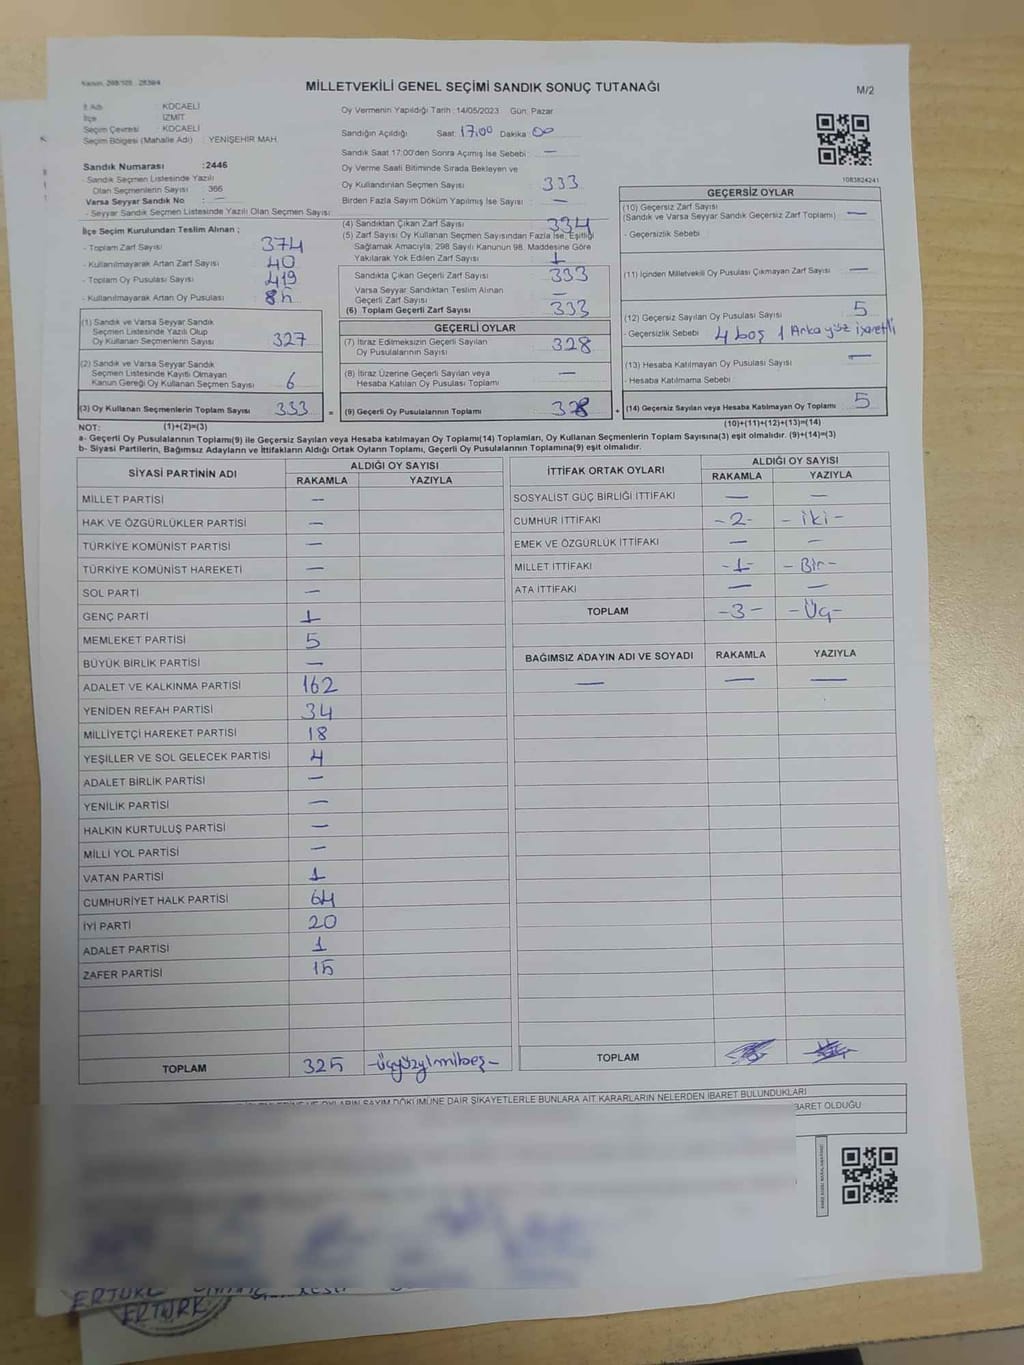 Kanun: 298/105 - 2839/4
MİLLETVEKİLİ GENEL SEÇİMİ SANDIK SONUÇ TUTANAĞI
M/2
İl Adı : KOCAELİ
İlçe : İZMİT
Seçim Çevresi : KOCAELİ
Seçim Bölgesi (Mahalle Adı) : YENİŞEHİR MAH.
Oy Vermenin Yapıldığı Tarih : 14/05/2023 Gün: Pazar
Sandığın Açıldığı Saat: 17,00 Dakika: 00
Sandık Saat 17:00'den Sonra Açılmış İse Sebebi : —
Sandık Numarası :2446
- Sandık Seçmen Listesinde Yazılı
Olan Seçmenlerin Sayısı : 366
Varsa Seyyar Sandık No : —
- Seyyar Sandık Seçmen Listesinde Yazılı Olan Seçmen Sayısı:
Oy Verme Saati Bitiminde Sırada Bekleyen ve
Oy Kullandırılan Seçmen Sayısı 333
Birden Fazla Sayım Döküm Yapılmış İse Sayısı : —
1083824241
İlçe Seçim Kurulundan Teslim Alınan ;
- Toplam Zarf Sayısı : 374
- Kullanılmayarak Artan Zarf Sayısı : 40
- Toplam Oy Pusulası Sayısı : 419
- Kullanılmayarak Artan Oy Pusulası : 85
(1) Sandık ve Varsa Seyyar Sandık
Seçmen Listesinde Yazılı Olup
Oy Kullanan Seçmenlerin Sayısı 327
(2) Sandık ve Varsa Seyyar Sandık
Seçmen Listesinde Kayıtlı Olmayan
Kanun Gereği Oy Kullanan Seçmen Sayısı 6
(3) Oy Kullanan Seçmenlerin Toplam Sayısı 333 =
(4) Sandıktan Çıkan Zarf Sayısı : 334
(5) Zarf Sayısı Oy Kullanan Seçmen Sayısından Fazla İse, Eşitliği
Sağlamak Amacıyla; 298 Sayılı Kanunun 98. Maddesine Göre
Yakılarak Yok Edilen Zarf Sayısı : 1
Sandıkta Çıkan Geçerli Zarf Sayısı 333
Varsa Seyyar Sandıktan Teslim Alınan
Geçerli Zarf Sayısı —
(6) Toplam Geçerli Zarf Sayısı 333
GEÇERLİ OYLAR
(7) İtiraz Edilmeksizin Geçerli Sayılan
Oy Pusulalarının Sayısı 328
(8) İtiraz Üzerine Geçerli Sayılan veya
Hesaba Katılan Oy Pusulası Toplamı —
(9) Geçerli Oy Pusulalarının Toplamı 328 +
GEÇERSİZ OYLAR
(10) Geçersiz Zarf Sayısı
(Sandık ve Varsa Seyyar Sandık Geçersiz Zarf Toplamı) —
- Geçersizlik Sebebi :
(11) İçinden Milletvekili Oy Pusulası Çıkmayan Zarf Sayısı —
(12) Geçersiz Sayılan Oy Pusulası Sayısı 5
- Geçersizlik Sebebi 4 boş 1 Arka yüz işaretli
(13) Hesaba Katılmayan Oy Pusulası Sayısı —
- Hesaba Katılmama Sebebi
(14) Geçersiz Sayılan veya Hesaba Katılmayan Oy Toplamı 5
NOT: (1)+(2)=(3) (10)+(11)+(12)+(13)=(14)
a- Geçerli Oy Pusulalarının Toplamı(9) ile Geçersiz Sayılan veya Hesaba katılmayan Oy Toplamı(14) Toplamları, Oy Kullanan Seçmenlerin Toplam Sayısına(3) eşit olmalıdır. (9)+(14)=(3)
b- Siyasi Partilerin, Bağımsız Adayların ve İttifakların Aldığı Ortak Oyların Toplamı, Geçerli Oy Pusulalarının Toplamına(9) eşit olmalıdır.
SİYASİ PARTİNİN ADI ALDIĞI OY SAYISI
RAKAMLA YAZIYLA
MİLLET PARTİSİ —
HAK VE ÖZGÜRLÜKLER PARTİSİ —
TÜRKİYE KOMÜNİST PARTİSİ —
TÜRKİYE KOMÜNİST HAREKETİ —
SOL PARTİ —
GENÇ PARTİ 1
MEMLEKET PARTİSİ 5
BÜYÜK BİRLİK PARTİSİ —
ADALET VE KALKINMA PARTİSİ 162
YENİDEN REFAH PARTİSİ 34
MİLLİYETÇİ HAREKET PARTİSİ 18
YEŞİLLER VE SOL GELECEK PARTİSİ 4
ADALET BİRLİK PARTİSİ —
YENİLİK PARTİSİ —
HALKIN KURTULUŞ PARTİSİ —
MİLLİ YOL PARTİSİ —
VATAN PARTİSİ 1
CUMHURİYET HALK PARTİSİ 64
İYİ PARTİ 20
ADALET PARTİSİ 1
ZAFER PARTİSİ 15
TOPLAM 325 -üçyüzyirmibeş-
İTTİFAK ORTAK OYLARI ALDIĞI OY SAYISI
RAKAMLA YAZIYLA
SOSYALİST GÜÇ BİRLİĞİ İTTİFAKI — —
CUMHUR İTTİFAKI -2- -iki-
EMEK VE ÖZGÜRLÜK İTTİFAKI — —
MİLLET İTTİFAKI -1- -Bir-
ATA İTTİFAKI — —
TOPLAM -3- -Üç-
BAĞIMSIZ ADAYIN ADI VE SOYADI RAKAMLA YAZIYLA
— — —
TOPLAM
OYLARIN SAYIM DÖKÜMÜNE DAİR ŞİKAYETLERLE BUNLARA AİT KARARLARIN NELERDEN İBARET BULUNDUKLARI
İBARET OLDUĞU
ERTÜRK